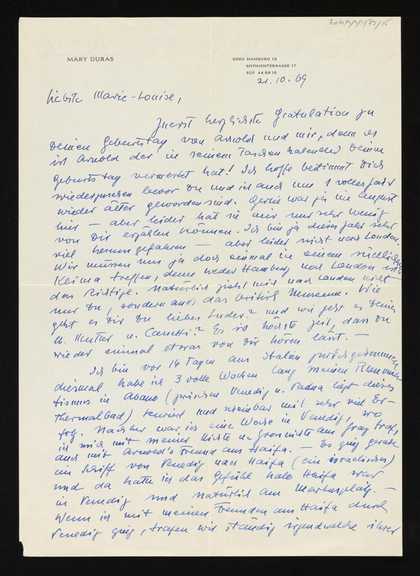 MARY DURAS
2000 HAMBURG 13
MITTELWEG 17
TEL 44 89 10
21.10.69
Liebste Marie-Louise,
Zuerst herzlichste Gratulation zu
Deinem Geburtstag von Arnold und mir, denn es
ist Arnold der in seinem Taschenkalender Deinen
Geburtstag vermerkt hat! Ich hoffe bestimmt Dich
wiederzusehen bevor Du und ich auch um 1 volles Jahr
wieder älter geworden sind. Gerda war ja im August
hier – aber leider hat sie mir nur sehr wenig
von Dir erzählen können. Ich bin ja dieses Jahr sehr
viel herumgefahren – aber leider nicht nach London.
Wir müssen uns ja doch einmal in einem südlichen
Klima treffen, denn weder Hamburg noch London ist
das Richtige. Natürlich zieht mich nach London nicht
nur Du, sondern auch das British Museum. Wie
geht es Dir Du liebes Luder? und wie geht es Deiner
M. Mutter u. Canetti? Es ist höchste Zeit, dass Du
wieder einmal etwas von Dir hören lässt. –
Ich bin vor 14 Tagen aus Italien zurückgekommen,
diesmal habe ich 3 volle Wochen lang meinen Rheuma-
tismus in Abano (zwischen Venedig u. Padua liegt dieses
Thermalbad) kuriert und scheinbar mit sehr viel Er-
folg. Nachher war ich eine Woche in Venedig, wo
ich mich mit meiner Nichte u. Grossnichte aus Prag traf,
und mit Arnold's Freund aus Haifa. – Es ging gerade
ein Schiff von Venedig nach Haifa (ein israelisches)
und da hatte ich das Gefühl halb Haifa war
in Venedig und natürlich am Markusplatz. –
Wenn ich mit meinen Freunden aus Haifa durch
Venedig ging, trafen wir ständig irgendwelche ihrer